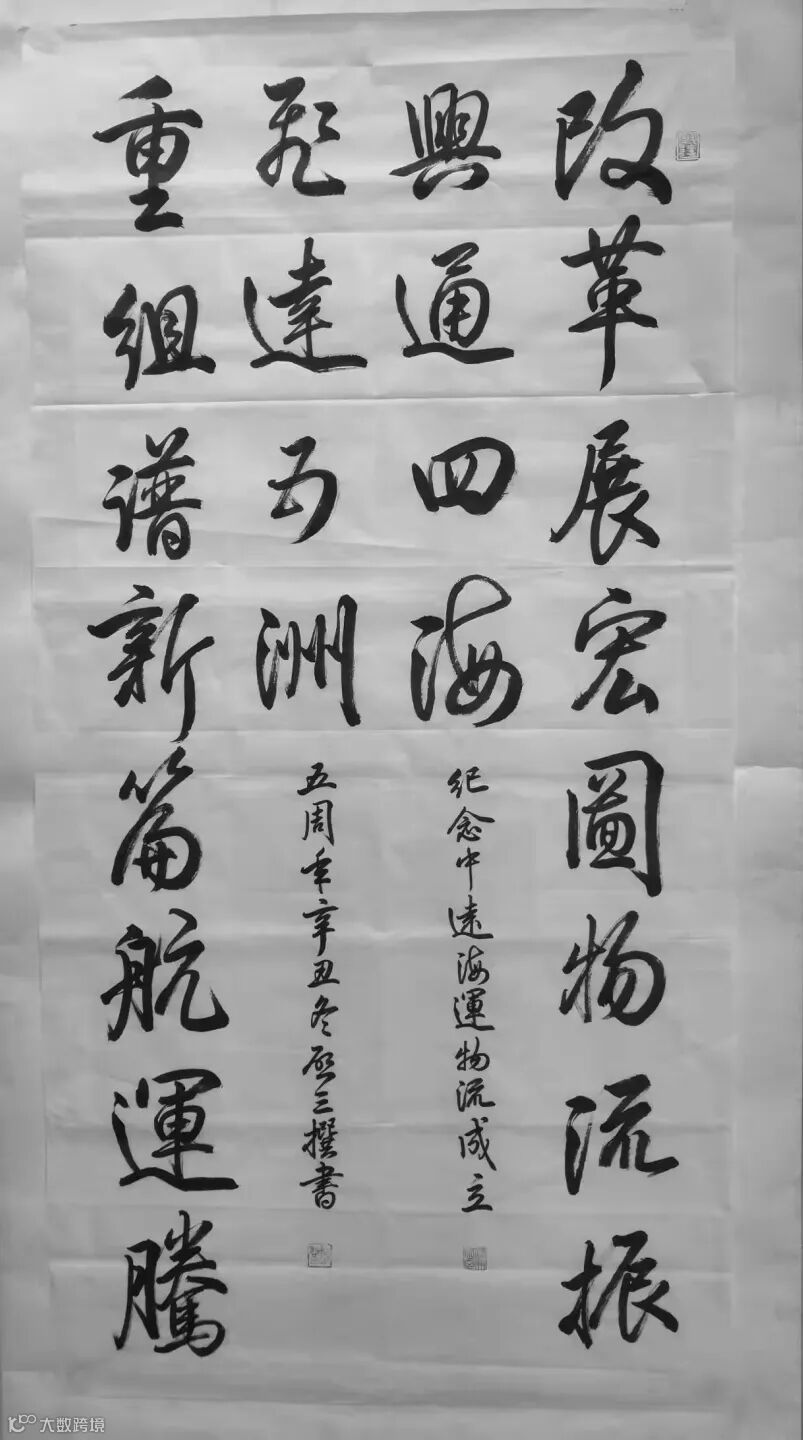 改革展宏圖物流振
興通四海
重組譜新篇航運騰
飛達五洲
紀念中遠海運物流成立
五周年辛丑冬三撰書
大数跨境